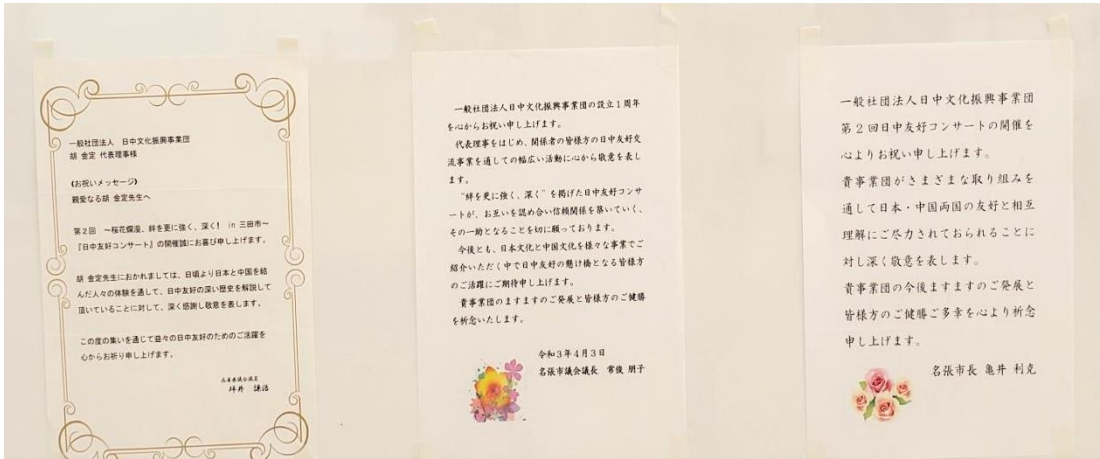 一般社団法人 日中文化振興事業団
胡 金定 代表理事様
(お祝いメッセージ)
親愛なる胡 金定先生へ
第2回 ～桜花爛漫、絆を更に強く、深く! in 三田市～
『日中友好コンサート』の開催誠にお喜び申し上げます。
胡 金定先生におかれましては、日頃より日本と中国を結
んだ人々の体験を通して、日中友好の深い歴史を解説して
頂いていることに対して、深く感謝し敬意を表します。
この度の集いを通じて益々の日中友好のためのご活躍を
心からお祈り申し上げます。
兵庫県議会議員
坪井 謙治
一般社団法人日中文化振興事業団の設立1周年
を心からお祝い申し上げます。
代表理事をはじめ、関係者の皆様方の日中友好交
流事業を通しての幅広い活動に心から敬意を表し
ます。
"絆を更に強く、深く"を掲げた日中友好コンサ
ートが、お互いを認め合い信頼関係を築いていく、
その一助となることを切に願っております。
今後とも、日本文化と中国文化を様々な事業でご
紹介いただく中で日中友好の懸け橋となる皆様方
のご活躍にご期待申し上げます。
貴事業団のますますのご発展と皆様方のご健勝
を祈念いたします。
令和3年4月3日
名張市議会議長 常俊 朋子
一般社団法人日中文化振興事業団
第2回日中友好コンサートの開催を
心よりお祝い申し上げます。
貴事業団がさまざまな取り組みを
通して日本・中国両国の友好と相互
理解にご尽力されておられることに
対し深く敬意を表します。
貴事業団の今後ますますのご発展と
皆様方のご健勝ご多幸を心より祈念
申し上げます。
名張市長 亀井 利克